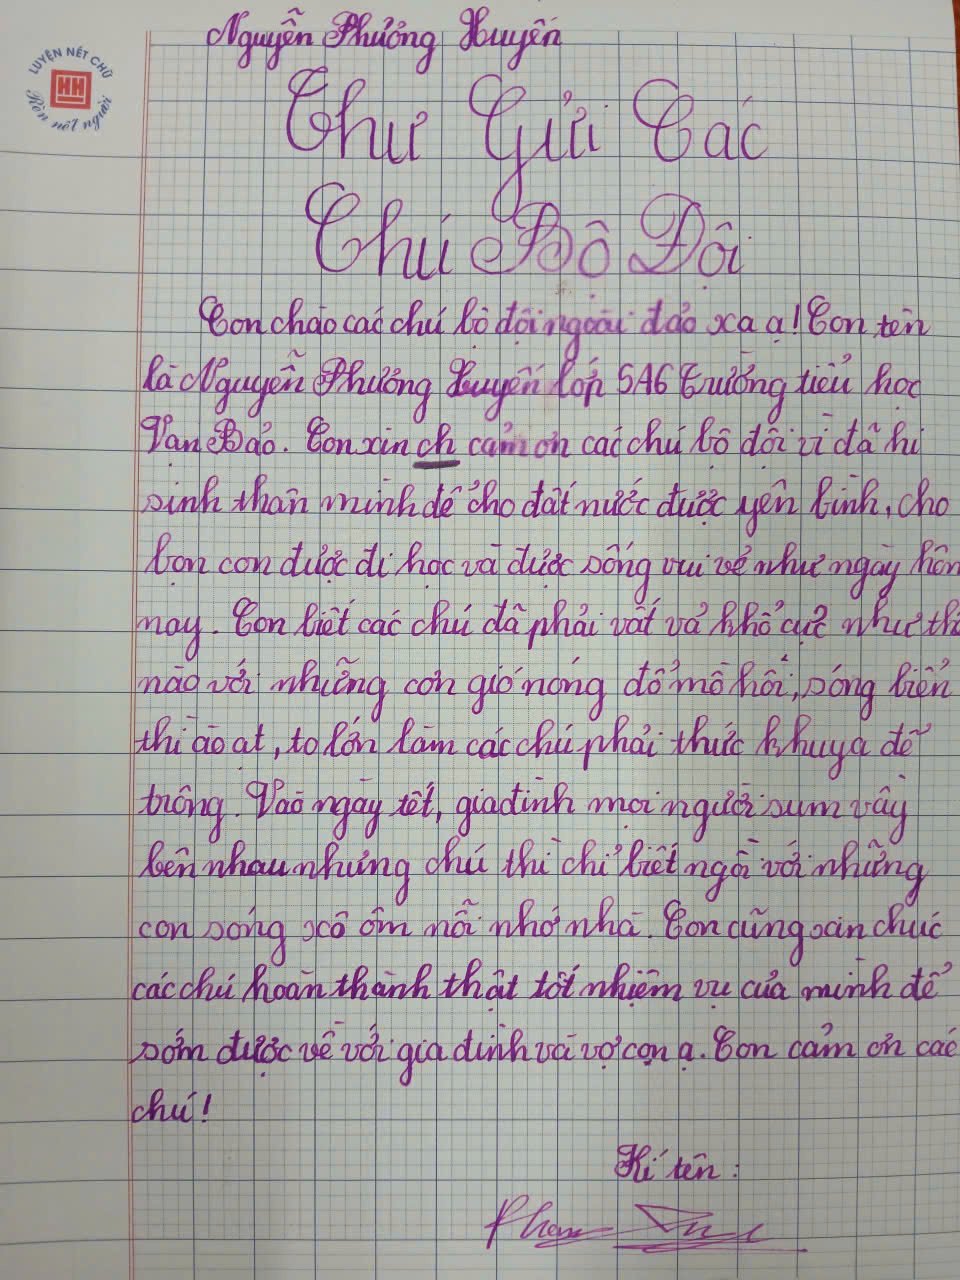 LUYỆN NÉT CHỮ
HH
Rèn nết người
Nguyễn Phương Huyền
Thư Gửi Các
Chú Bộ Đội
Con chào các chú bộ đội ngoài đảo xa ạ! Con tên
là Nguyễn Phương Huyền lớp 5A6 Trường tiểu học
Vạn Bảo. Con xin ch cảm ơn các chú bộ đội vì đã hi
sinh thân mình để cho đất nước được yên bình, cho
bọn con được đi học và được sống vui vẻ như ngày hôm
nay. Con biết các chú đã phải vất vả khổ cực như thế
nào với những cơn gió nóng đổ mồ hôi, sóng biển
thì ào ạt, to lớn làm các chú phải thức khuya để
trông. Vào ngày tết, gia đình mọi người sum vầy
bên nhau nhưng chú thì chỉ biết ngồi với những
con sóng xô ôm nỗi nhớ nhà. Con cũng xin chúc
các chú hoàn thành thật tốt nhiệm vụ của mình để
sớm được về với gia đình và vợ con ạ. Con cảm ơn các
chú!
Kí tên: